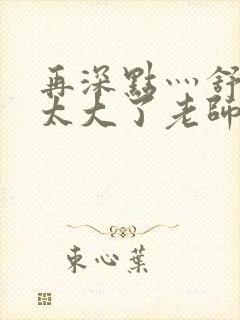 再深點灬舒
太大了老師
束心葉